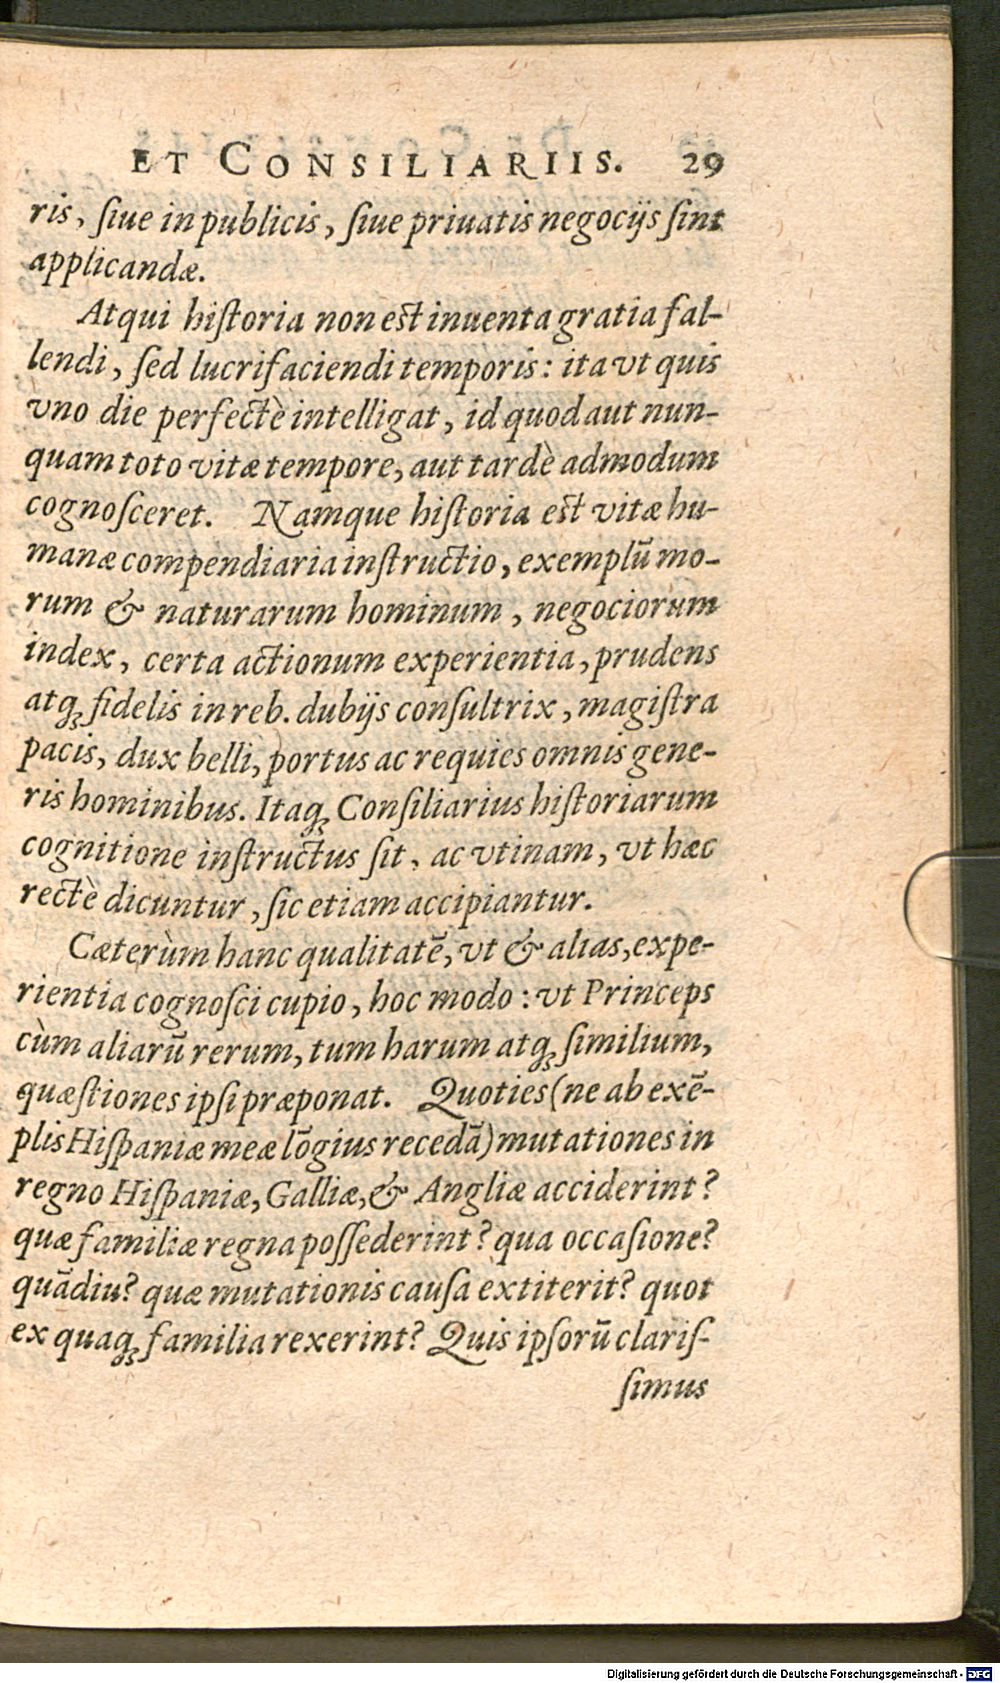 ET CONSILIARIIS. 29
ris, ſiue in publicis, ſiue priuatis negocijs ſint
applicandæ.
Atqui hiſtoria non est inuenta gratia fal-
lendi, ſed lucrifaciendi temporis: ita vt quis
vno die perfectè intelligat, id quod aut nun-
quam toto vitæ tempore, aut tardè admodum
cognoſceret. Namque hiſtoria est vitæ hu-
manæ compendiaria inſtructio, exemplū mo-
rum & naturarum hominum, negociorum
index, certa actionum experientia, prudens
atq; fidelis in reb. dubijs conſultrix, magiſtra
pacis, dux belli, portus ac requies omnis gene-
ris hominibus. Itaq; Conſiliarius hiſtoriarum
cognitione inſtructus ſit, ac vtinam, vt hæc
rectè dicuntur, ſic etiam accipiantur.
Cæterùm hanc qualitatē, vt & alias, expe-
rientia cognoſci cupio, hoc modo: vt Princeps
cùm aliarū rerum, tum harum atq; ſimilium,
quæſtiones ipſi præponat. Quoties (ne ab exē-
plis Hiſpaniæ meæ lōgius recedā) mutationes in
regno Hiſpaniæ, Galliæ, & Angliæ acciderint?
quæ familiæ regna poſſederint? qua occaſione?
quādiu? quæ mutationis cauſa extiterit? quot
ex quaq; familia rexerint? Quis ipſorū clariſ-
ſimus
Digitalisierung gefördert durch die Deutsche Forschungsgemeinschaft - DFG